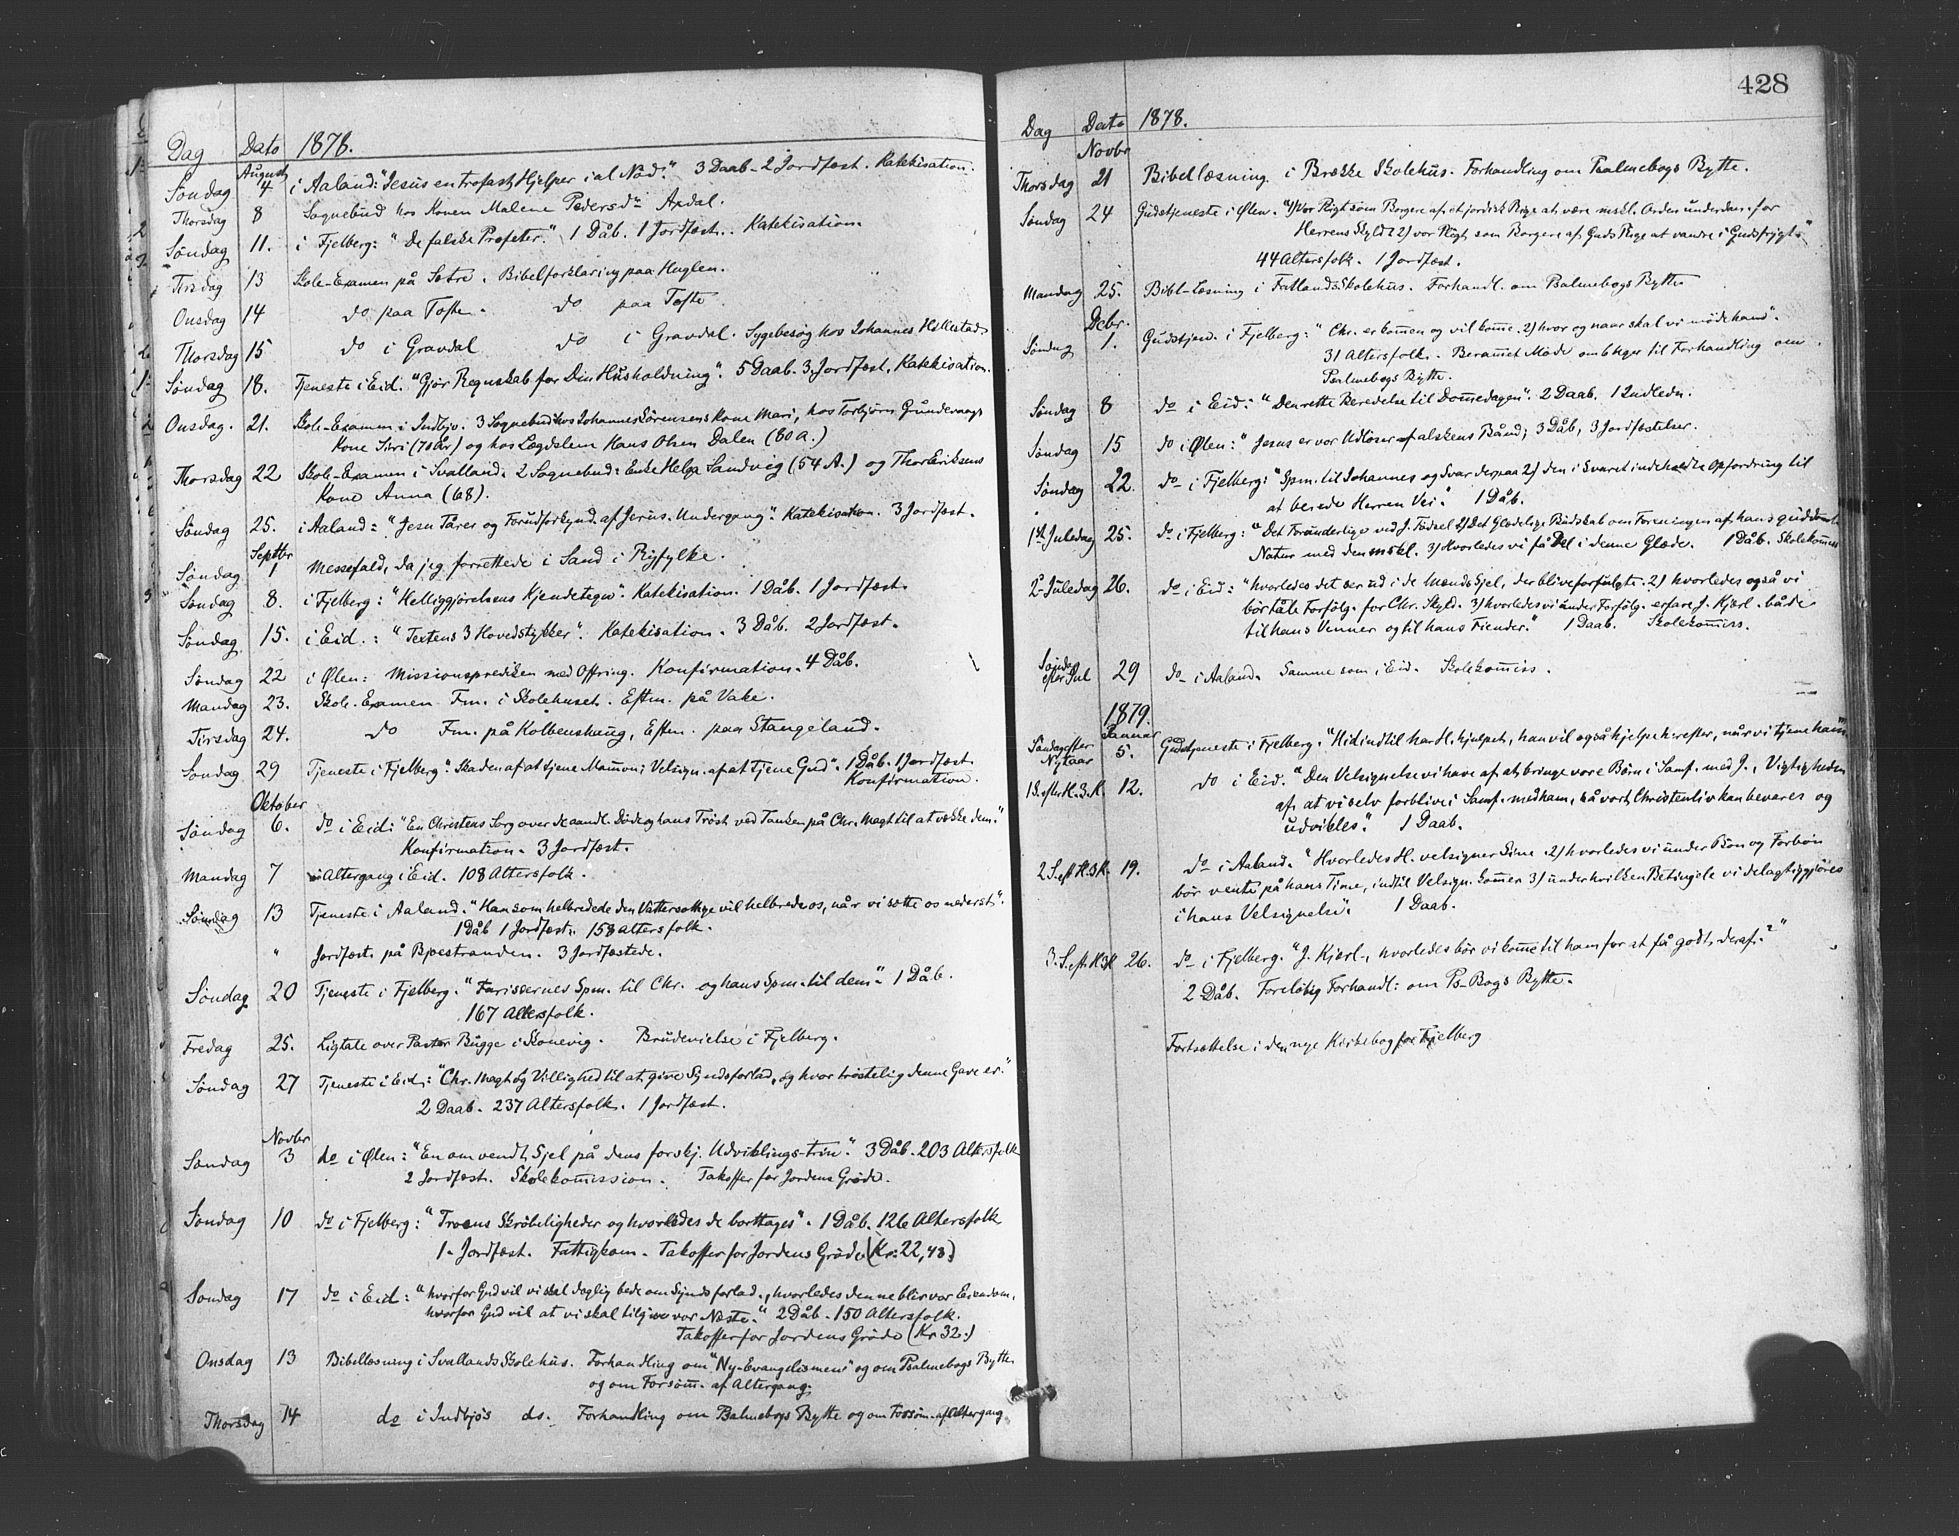 Dag Dato 1878.
August
Søndag 4 i Aaland: "Jesus en trofast Hjelper i al Nød." 3 Daab - 2 Jordfæst. Katekisation.
Thorsdag 8 Sognebud hos Konen Malene Pedersdr Axdal.
Søndag 11. i Fjelberg: "De falske Profeter." 1 Dåb. 1 Jordfæst. Katekisation.
Tirsdag 13 Skole-Examen på Sætre. Bibelforklaring paa Huglen.
Onsdag 14 do paa Tofte. do paa Tofte.
Thorsdag 15 do i Gravdal do i Gravdal. Sygebesøg hos Johannes Hillestad
Søndag 18. Tjeneste i Eid. "Gjør Regnskab for Din Husholdning". 5 Daab. 3 Jordfæst. Katekisation.
Onsdag. 21. Skole-Examen i Indbjo. 3 Sognebud: hos Johannes Sørensens Kone Mari, hos Torbjørn
Kone Siri (70 år) og hos Lægdslem Hans Olsen Dalen (80 A.)
Thorsdag 22 Skole-Examen i Svalland. 2 Sognebud: Enke Helga Sandvig (54 A.) og Thor Eriksens
Kone Anna (68).
Søndag 25. i Aaland: "Jesu Tårer og Forudforkynd. af Jerus. Undergang". Katekisation. 3 Jordfæst.
Septbr
Søndag 1 Messefald, da jeg forrettede i Sand i Ryfylke.
Søndag 8. i Fjelberg: "Helliggjørelsens Kjendetegn". Katekisation. 1 Dåb. 1 Jordfæst.
Søndag 15. i Eid.: "Textens 3 Hovedstykker". Katekisation. 3 Dåb. 2 Jordfæst.
Søndag 22 i Ølen: Missionsprediken med Offring. Konfirmation. 4 Dåb.
Mandag 23. Skole-Examen Fm. i Skolehuset. Eftm. på Vake.
Tirsdag 24. do Fm. på Kolbenshaug, Eftm. paa Stangeland.
Søndag 29 Tjeneste i Fjelberg: "Skaden af at tjene Mammon; Velsign. af at tjene Gud". 1 Dåb. 1 Jordfæst.
Konfirmation.
Oktober
Søndag 6. do i Eid: "En Christens Sorg over de aandl. Døde og hans Trøst ved Tanken på Chr. Magt til at vække dem."
Konfirmation. 3 Jordfæst.
Mandag 7 Altergang i Eid. 108 Altersfolk.
Søndag 13 Tjeneste i Aaland. "Han som helbredede den Vattersottige vil helbrede os, når vi sætte os nederst".
1 Dåb 1 Jordfæst. 158 Altersfolk.
" Jordfæst. på Bjoestranden. 3 Jordfæstede.
Søndag 20 Tjeneste i Fjelberg. "Farisæernes Spm. til Chr. og hans Spm. til dem". 1 Dåb.
167 Altersfolk.
Fredag 25. Ligtale over Pastor Bugge i Skonevig. Brudevielse i Fjelberg.
Søndag 27 Tjeneste i Eid: "Chr. Magt og Villighed til at give Syndsforlad. og hvor trøstelig denne Gave er."
2 Daab. 237 Altersfolk. 1 Jordfæst.
Novbr
Søndag 3 do i Ølen: "En omvendt Sjel på dens forskj. Udviklings-trin." 3 Dåb. 203 Altersfolk
2 Jordfæst. Skolekomission. Takoffer for Jordens Grøde.
Søndag 10 do i Fjelberg: "Troens Skrøbeligheder og hvorledes de borttages". 1 Dåb. 126 Altersfolk
1 Jordfæst. Fattigkom. Takoffer for Jordens Grøde (Kr. 22,43)
Søndag 17 do i Eid: "hvorfor Gud vil vi skal daglig bede om Syndsforlad., hvorledes denne blir vor Eiendom,
hvorfor Gud vil at vi skal tilgive vor Næste." 2 Dåb. 150 Altersfolk.
Takoffer for Jordens Grøde (Kr 32.)
Onsdag 13 Bibellæsning i Svallands Skolehus. Forhandling om "Ny-Evangelismen" og om Psalmebogs Bytte
og om Forsøm. af Altergang.
Thorsdag 14 do i Indbjo's do. Forhandling om Psalmebogs Bytte og om Forsøm. af Altergang
428
Dag Dato 1878.
Novbr
Thorsdag 21 Bibellæsning i Brække Skolehus. Forhandling om Psalmebogs Bytte.
Søndag 24 Gudstjeneste i Ølen. "1) Vor Pligt som Borgere af et jordisk Rige at være mskl. Orden underdan. for
Herrens Skyld 2) vor Pligt som Borgere af Guds Rige at vandre i Gudsfrygt."
44 Altersfolk. 1 Jordfæst.
Mandag 25. Bibl-Læsning i Fatlands Skolehus. Forhandl. om Psalmebogs Bytte
Decbr.
Søndag 1. Gudstjen. i Fjelberg: "Chr. er kommen og vil komme. 2) hvor og naar skal vi møde ham".
31 Altersfolk. Berammet Møde om 6 Uger til Forhandling om
Psalmebogs Bytte.
Søndag 8 do i Eid: "Den rette Beredelse til Dommedagen". 2 Daab. 1 Indledn.
Søndag 15 do i Ølen: "Jesus er vor Udløser af alskens Bånd; 3 Dåb, 3 Jordfæstelser.
Søndag 22. do i Fjelberg: "Spm. til Johannes og Svar derpaa 2) den i Svaret indeholdte Opfordring til
at berede Herren Vei." 1 Dåb.
1st Juledag 25. do i Fjelberg: "Det Forunderlige ved J. Fødsel 2) Det Glædelige Budskab om Foreningen af hans guddoml.
Natur med den mskl. 3) Hvorledes vi få Del i denne Glæde. 1 Dåb. Skolekomiss
2. Juledag 26. do i Eid: "hvorledes det ser ud i de Mænds Sjel, der blive forfulgte. 2) hvorledes også vi
bør tåle Forfølg. for Chr. Skyld. 3) hvorledes vi under Forfølg. erfare J. Kjærl. både
til hans Venner og til hans Fiender." 1 Daab. Skolekomiss.
Søndag
efter Jul 29 do i Aaland. Samme som i Eid. Skolekomiss.
1879.
Januar
Søndag efter
Nytaar 5. Gudstjeneste i Fjelberg. "Hidindtil har H. hjulpet, han vil også hjelpe herefter, når vi tjene ham"
1 S. efter H. 3. K. 12. do i Eid. "Den Velsignelse vi have af at bringe vore Børn i Samf. med J., Vigtigheden
af at vi selv forblive i Samf. med ham, så vort Christenliv kan bevares og
udvikles." 1 Daab.
2 S. eft H. 3 K. 19. do i Aaland. "Hvorledes H. velsigner Sine. 2) hvorledes vi under Bøn og Forbøn
bør vente på hans Time, indtil Velsign. kommer 3) under hvilken Betingelse vi delagtiggjøres
i hans Velsignelse". 1 Daab.
3. S. eft. H 3 K 26. do i Fjelberg. "J. Kjærl., hvorledes bør vi komme til ham for at få godt deraf?"
2 Dåb. Foreløbig Forhandl: om Ps-Bogs Bytte.
Fortsættelse i den nye Kirkebog for Fjelberg